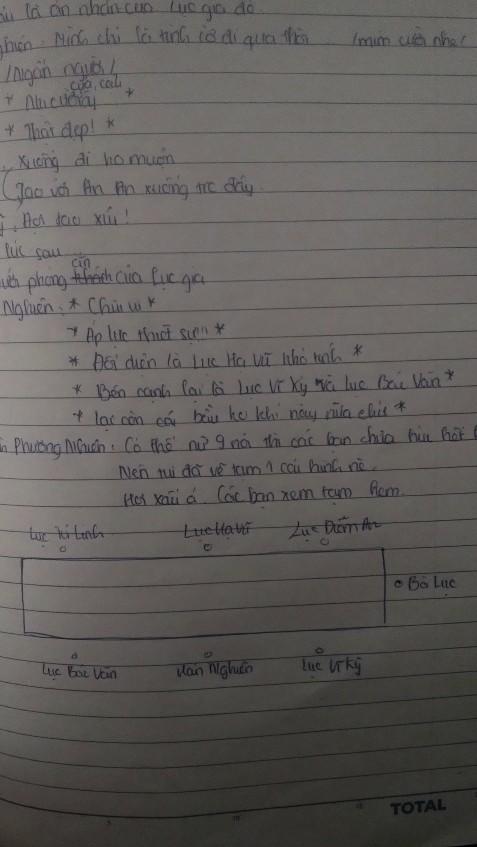 là ân nhân của Lục gia đó.
Mình chỉ là tình cờ đi qua thôi /mỉm cười nhẹ/
/Ngẩn người/
* Nụ cười *
* Thật đẹp! *
Xuống đi ko muộn
(Tao với An An xuống trc đây
Hơi dao xíu!
lúc sau
phòng căn của Lục gia
Nghiên: * Chíu u *
* Áp lực thiệt sự!! *
* Đối diện là Lục Hạ Vũ khó tính *
* Bên cạnh lại là Lục Vĩ Kỳ và Lục Bác Văn *
* lại còn cái bầu ko khí này nữa chứ *
Phương Nghiên: Có thể nữ 9 nói thì các bạn chưa hỉu hết
Nên tui đã vẽ tạm 1 cái hình nè.
Hơi xấu á. Các bạn xem tạm hem.
Lục Hạ Vũ Lục Diễm An
Bà Lục
Lục Bác Văn Nghiên Lục Vĩ Kỳ
TOTAL